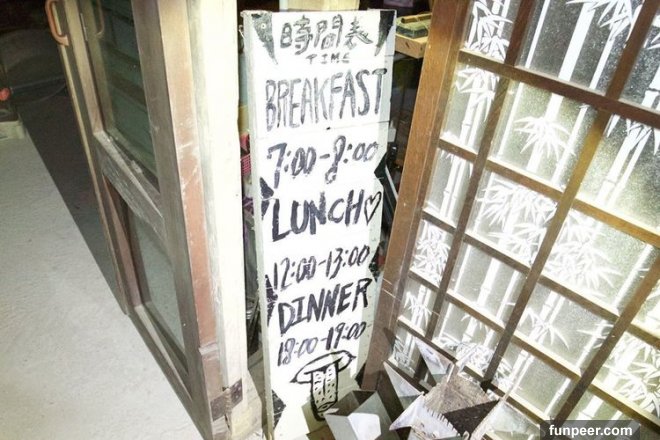 時間表
TIME
BREAKFAST
7:00-8:00
LUNCH♡
12:00-13:00
DINNER
18:00-19:00
funpeer.com